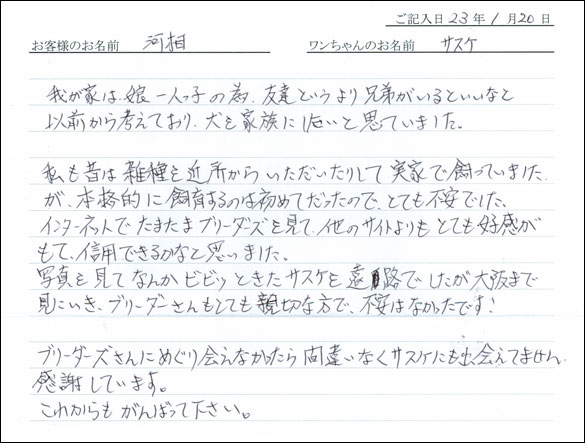 ご記入日 23年 1月20日
お客様のお名前 河相 ワンちゃんのお名前 サスケ
我が家は、娘一人っ子の為、友達というより兄弟がいるといいなと
以前から考えており、犬を家族にしたいと思ていました。
私も昔は雑種を近所からいただいたりして実家で飼っていました
が、本格的に飼育するのは初めてだったので、とても不安でした。
インターネットでたまたまブリーダーズを見て、他のサイトよりもとても好感が
もて、信用できるかなと思いました。
写真を見てなんかビビッときたサスケを遠路でしたが大阪まで
見にいき、ブリーダーさんもとても親切な方で、不安はなかったです!
ブリーダーズさんにめぐり会えなかったら間違いなくサスケにも出会えてません
感謝しています。
これからもがんばって下さい。